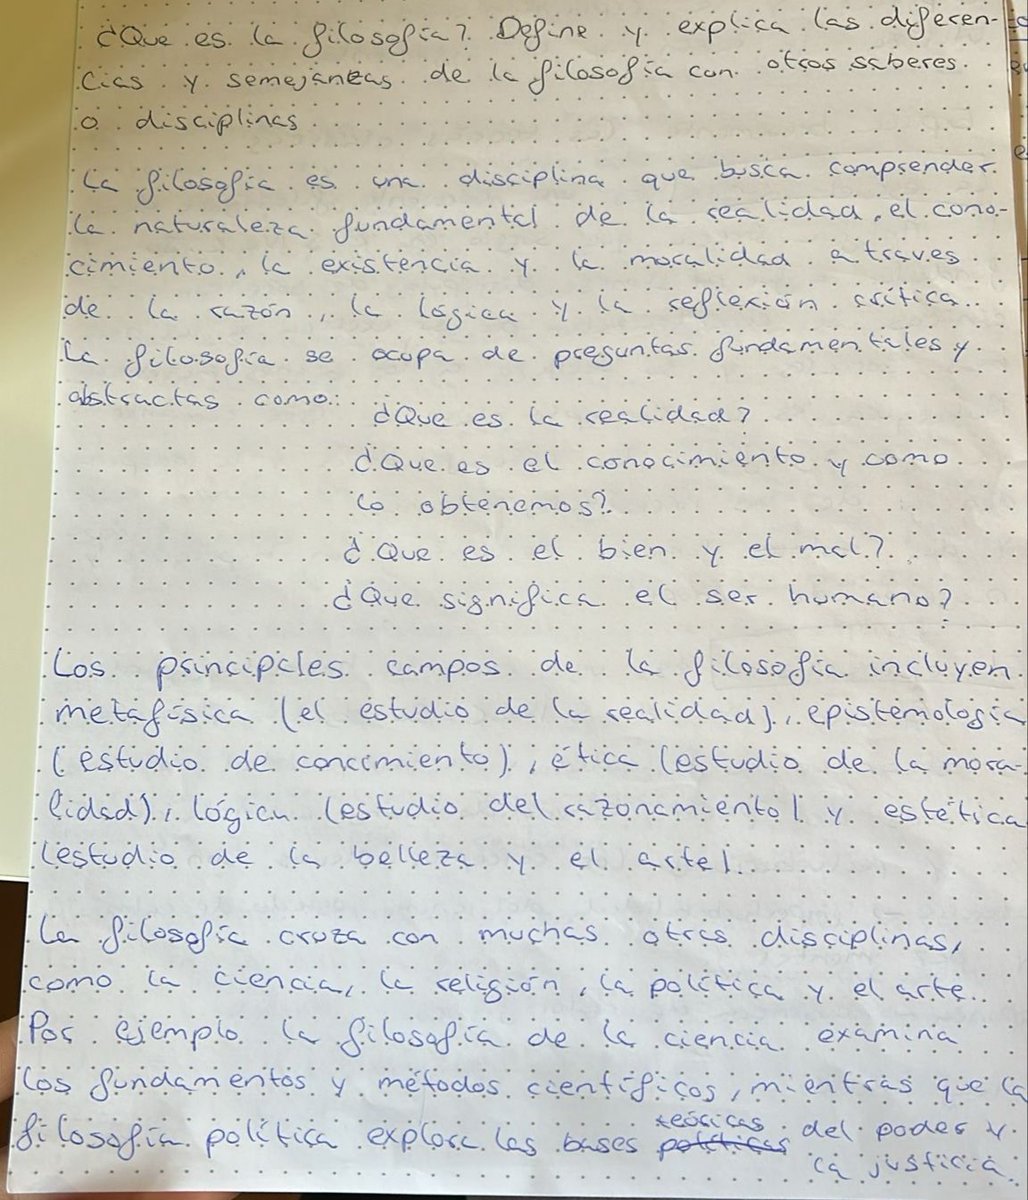 ¿Que es la filosofía? Define y explica las diferen-
cias y semejanzas de la filosofía con otros saberes
o disciplinas
La filosofía es una disciplina que busca comprender
la naturaleza fundamental de la realidad, el cono-
cimiento, la existencia y la moralidad a traves
de la razón, la lógica y la reflexión crítica.
La filosofía se ocupa de preguntas fundamentales y
abstractas como:
¿Que es la realidad?
¿Que es el conocimiento y como
lo obtenemos?
¿Que es el bien y el mal?
¿Que significa el ser humano?
Los principales campos de la filosofía incluyen
metafísica (el estudio de la realidad), epistemología
(estudio de concimiento), ética (estudio de la mora-
lidad), lógica (estudio del razonamiento) y estética
(estudio de la belleza y el arte).
La filosofía cruza con muchas otras disciplinas,
como la ciencia, la religión, la política y el arte.
Por ejemplo la filosofía de la ciencia examina
los fundamentos y métodos científicos, mientras que la
filosofía política explora las bases teóricas del poder y
la justicia